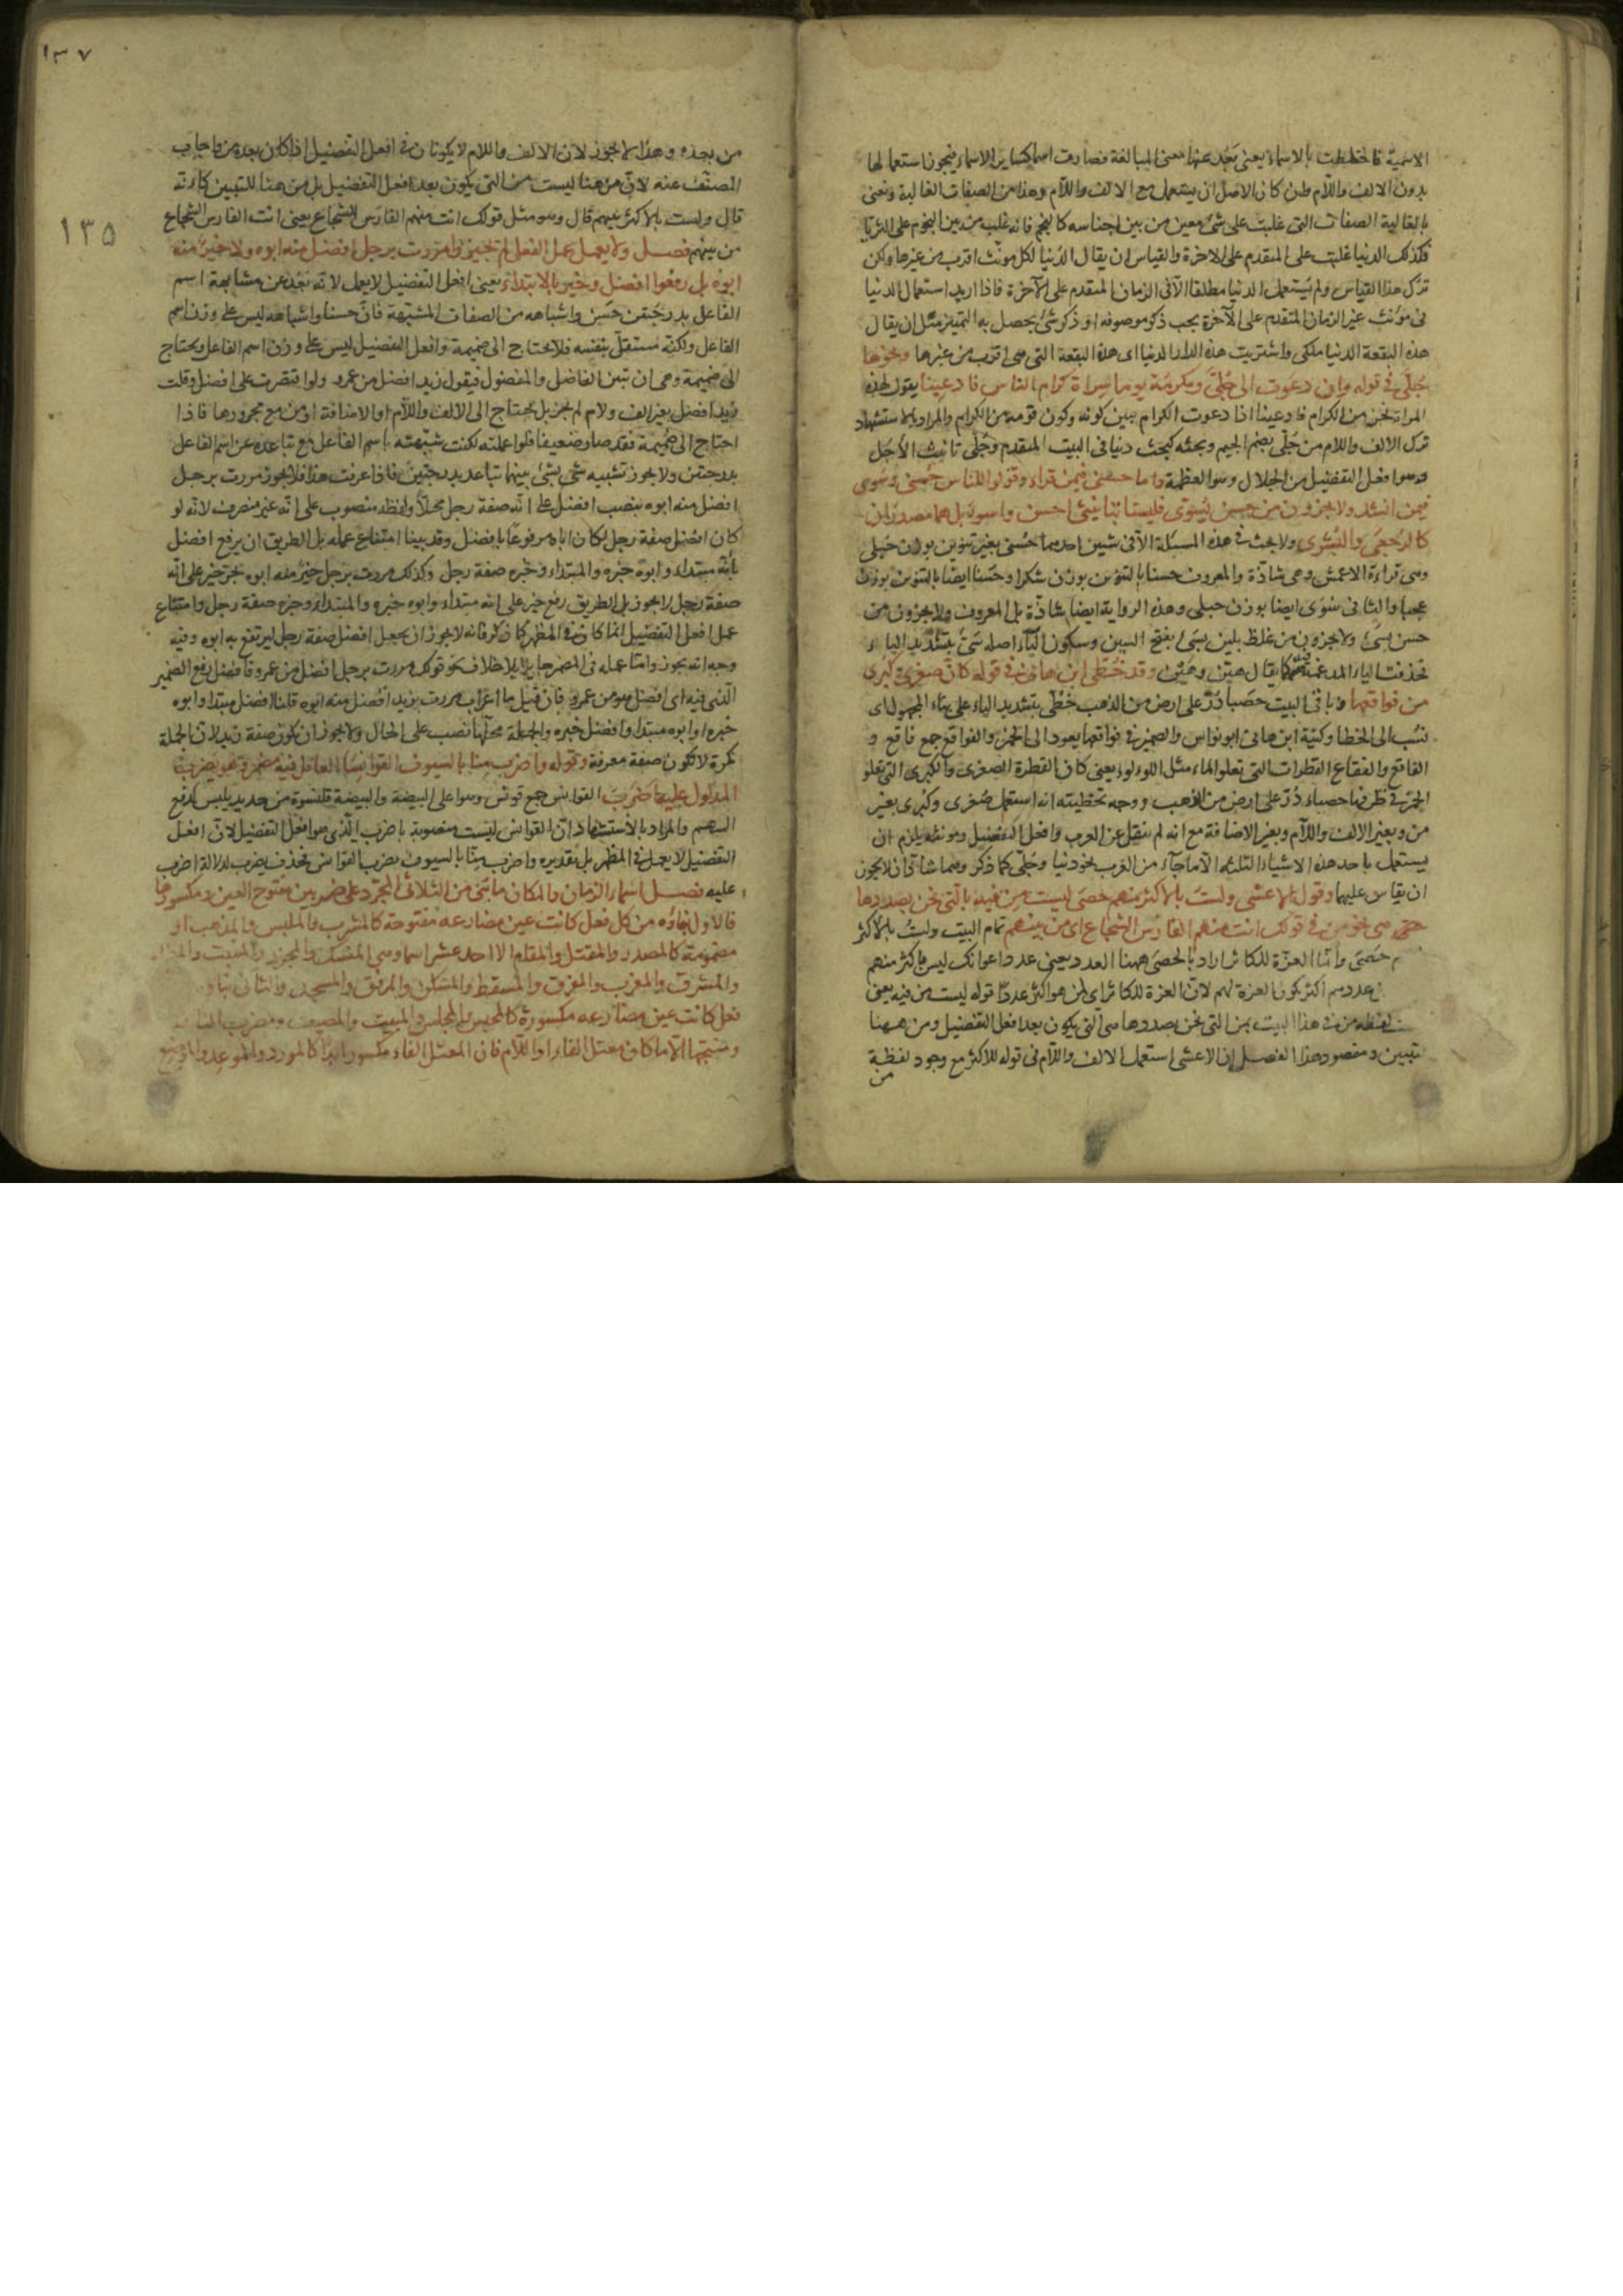 الاسمية فاختلطت بالاسماء يعنى بَعُد عنها معنى المبالغة فصارت اسما كساير الاسماء فيجوز استعمالها
بدون الالف واللام وان كان الاصل ان يستعمل مع الالف واللام وهذا من الصفات الغالبة ونعنى
بالغالبة الصفات التى غلبت على شئ معين من بين اجناسه كالنجم فانه غلب من بين النجوم على الثريا
فكذلك الدنيا غلبت على المتقدم على الاخرة والقياس ان يقال الدنيا لكل مونث اقرب من غيرها ولكن
ترك هذا القياس ولم يستعمل الدنيا مطلقا الا فى الزمان المتقدم على الآخرة فاذا اريد استعمال الدنيا
فى مونث غير الزمان المتقدم على الآخرة يجب ذكر موصوفه او ذكر شئ يحصل به التميز مثل ان يقال
هذه البقعة الدنيا ملكى واشتريت هذه الدار الدنيا اى هذه البقعة التى هى اقرب من غيرها ونحوها
جُلّى فى قوله وان دعوت الى جُلّى ومكرمة يوما سراة كرام الناس فادعينا يقول لهذه
المراة نحن من الكرام فادعينا اذا دعوت الكرام يبين كونه وكون قومه من الكرام والمراد بالاستشهاد
ترك الالف واللام من جُلّى بضم الجيم وبحثه كبحث دنيا فى البيت المتقدم وجُلّى تانيث الأجلّ
وهو افعل التفضيل من الجلال وهو العظمة واما حسنى فيمن قراء وقولوا للناس حُسنى وسُوى
فيمن انشد ولا يجزون من حسن بسُوى فليستا بتانيثى احسن واسوء بل هما مصدران
كالرجعى والبشرى ولا بحث فى هذه المسئلة الا فى شيئين احدهما حسنى بغير تنوين بوزن حبلى
وهى قراءة الاعمش وهى شاذة والمعروف حسنا بالتنوين بوزن شكرا وحَسَنا ايضا بالتنوين بوزن
عجبا والثانى سُوى ايضا بوزن حبلى وهذه الرواية ايضا شاذة بل المعروف ولا يجزون من
حسن بسئ ولا يجزون من غلظ بلين بسئ بفتح السين وسكون الياء اصله سئ بتشديد الياء
فحذفت الياء المدغمة فيها كما يقال هيّن وهَين وقد خُطّى ابن هانى فى قوله كان صغرى وكبرى
من فواقعها وباقى البيت حصباء دُرّ على ارض من الذهب خُطّى بتشديد الياء على بناء المجهول اى
نسب الى الخطا وكنية ابن هانى ابو نواس والضمير فى فواقعها يعود الى الخمر والفواقع جمع فاقع و
الفاقع والفقاع القطرات التى تعلو الماء مثل اللوءلوء يعنى كان القطرة الصغرى والكبرى التى تعلو
الخمر فى ظرفها حصباء دُرّ على ارض من الذهب ووجه تخطيته انه استعمل صُغرى وكُبرى بغير
من وبغير الالف واللام وبغير الاضافة مع انه لم ينقل عن العرب وافعل التفضيل ومونثه يلزم ان
يستعمل باحد هذه الاشياء الثلثة الا ما جاء من العرب نحو دنيا وجُلّى كما ذكر وهما شاذان لا يجوز
ان يقاس عليهما وقول الاعشى ولستَ بالاكثر منهم حصى ليست مِن فيه بالتى نحن بصددها
هى نحو من فى قولك انت منهم الفارس الشجاع اى من بينهم تمام البيت ولستُ بالاكثر
م حَصَى وانما العزّة للكاثر اراد بالحصى ههنا العدد يعنى عدد اعوانك ليس باكثر منهم
عددهم اكثر يكون العزة لهم لان العزة للكاثر اى لمن هو اكثر عددا قوله ليست من فيه يعنى
لفظه من فى هذا البيت بمن التى نحن بصددها هى التى يكون بعد افعل التفضيل ومن ههنا
تبيين ومقصود هذا الفصل ان الاعشى استعمل الالف واللام فى قوله للاكثر مع وجود لفظة
من
١٣٧
١٣٥
من بعده وهذا لا يجوز لان الالف واللام لا يكونان فى افعل التفضيل اذا كان بعده من فاجاب
المصنّف عنه لان من هنا ليست من التى يكون بعد افعل التفضيل بل من هنا للتبيين كانه
قال ولست بالاكثر بينهم قال وهو مثل قولك انت منهم الفارس الشجاع يعنى انت الفارس الشجاع
من بينهم فصل ولا يعمل عمل الفعل لم تجيزوا مررت برجل افضل منه ابوه ولا خير منه
ابوه بل رفعوا افضل وخير بالابتداء يعنى افعل التفضيل لا يعمل لانه بَعُد عن مشابهة اسم
الفاعل بدرجتين حَسَن واشباهه من الصفات المشبّهة فانّ حسنا واشباهه ليس على وزن اسم
الفاعل ولكنه مستقل بنفسه فلا يحتاج الى ضميمة وافعل التفضيل ليس على وزن اسم الفاعل ويحتاج
الى ضميمة وهى ان تبين الفاضل والمفضول فيقول زيد افضل من عمرو ولو اقتصرت على افضل وقلت
زيد افضل بغير الف ولام لم يجز بل يحتاج الى الالف واللام او الاضافة او من مع مجرورها فاذا
احتاج الى ضميمة فقد صار ضعيفا فلو اعملته لكنت شبّهته باسم الفاعل مع تباعده عن اسم الفاعل
بدرجتين ولا يجوز تشبيه شئ بشئ بينهما تباعد بدرجتين فاذا عرفت هذا فلا يجوز مررت برجل
افضل منه ابوه بنصب افضل على انّه صفة رجل محلاً ولفظه منصوب على انّه غير منصرف لانه لو
كان افضل صفة رجل لكان ابوه مرفوعا بافضل وقد بينا امتناع عمله بل الطريق ان يرفع افضل
بانه مبتداء وابوه خبره والمبتداء وخبره صفة رجل وكذلك مررت برجل خير منه ابوه بجر خير على انه
صفة رجل لا يجوز بل الطريق رفع خير على انه مبتداء وابوه خبره والمبتداء وخبره صفة رجل وامتناع
عمل افعل التفضيل انما كان فى المظهر كان فانه لا يجوز ان يجعل افضل صفة رجل ليرتفع به ابوه وفيه
وجه انه يجوز وامّا عمله فى المضمر جايز بلا خلاف نحو قولك مررت برجل افضل من عمرو فافضل رفع الضمير
الذى فيه اى افضل هو من عمرو فان قيل ما اعراب مررت بزيد افضل منه ابوه قلنا افضل مبتدا وابوه
خبره او ابوه مبتدا وافضل خبره والجملة محلّها نصب على الحال ولا يجوز ان يكون صفة زيد لان الجملة
نكرة لا تكون صفة معرفة وقوله واضرب منّا بالسيوف القوانسا العامل فيه مضمر وهو يضرب
المدلول عليه باضرب القوانس جمع قونس وهو اعلى البيضة والبيضة قلنسوة من حديد يلبس لدفع
السهم والمراد بالاستشهاد انّ القوانس ليست منصوبة باضرب الّذى هو افعل التفضيل لانّ افعل
التفضيل لا يعمل فى المظهر بل تقديره واضرب منّا بالسيوف يضرب القوانس فحذف يضرب لدلالة اضرب
عليه فصل اسماء الزمان والمكان ما بنى من الثلاثى المجرّد على ضربين مفتوح العين ومكسورها
فالاول بناؤه من كل فعل كانت عين مضارعه مفتوحة كالمشرب والملبس والمذهب او
مضمومة كالمصدر والمقتل والمقام الا احد عشر اسما وهى المنسك والمجزر والمنبت والمطلع
والمشرق والمغرب والمفرق والمسقط والمسكن والمرفق والمسجد والثانى بناؤه
فعل كانت عين مضارعه مكسورة كالمحبس والمجلس والمبيت والمصيف ومضرب الناقة
ومنتجها الّا ما كان معتل الفاء او اللام فان المعتل الفاء مكسور ابدا كالمورد والموعد والموضع